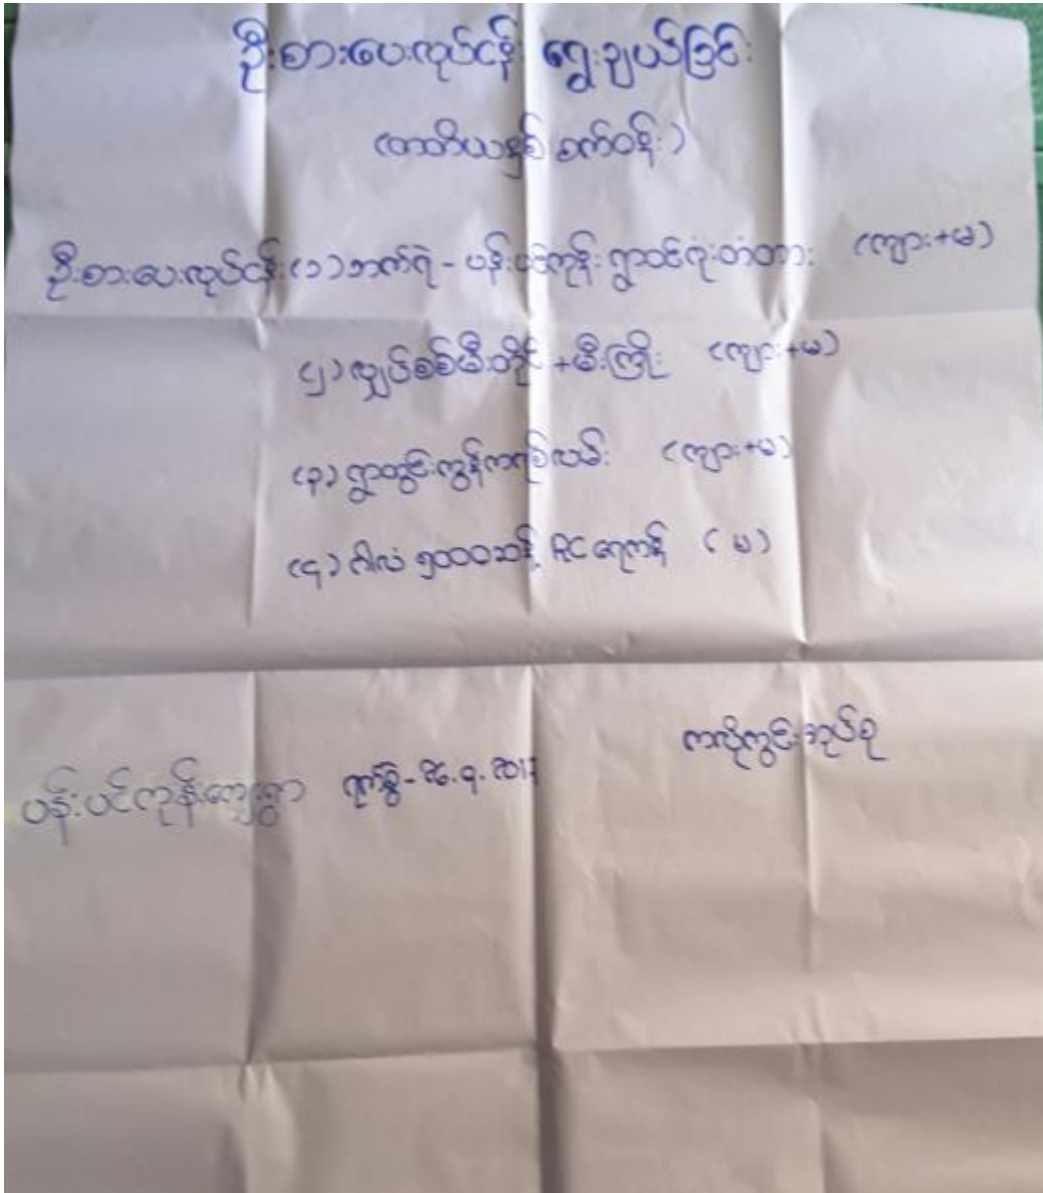 ဦးစားပေးလုပ်ငန်း ရွေးချယ်ခြင်း
(တတိယနှစ် စက်ဝန်း)
ဦးစားပေးလုပ်ငန်း (၁) ဘက်ရဲ - ပန်းပင်ကုန်း ရွာဝင်ရိုးတံတား (ကျား+မ)
(၂) လျှပ်စစ်မီးတိုင် +မီးကြိုး (ကျား+မ)
(၃) ရွာတွင်းကွန်ကရစ်လမ်း (ကျား+မ)
(၄) ဂါလံ ၅၀၀၀ဆန့် RC ရေကန် (မ)
ကလိုကွင်းအုပ်စု
ပန်းပင်ကုန်းကျေးရွာ ရက်စွဲ-